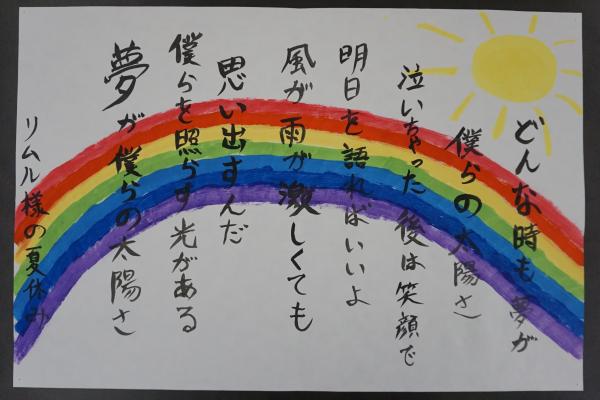 どんな時も夢が
僕らの太陽さ
泣いちゃった後は笑顔で
明日を語ればいいよ
風が雨が激しくても
思い出すんだ
僕らを照らす光がある
夢が僕らの太陽さ
リムル様の夏休み